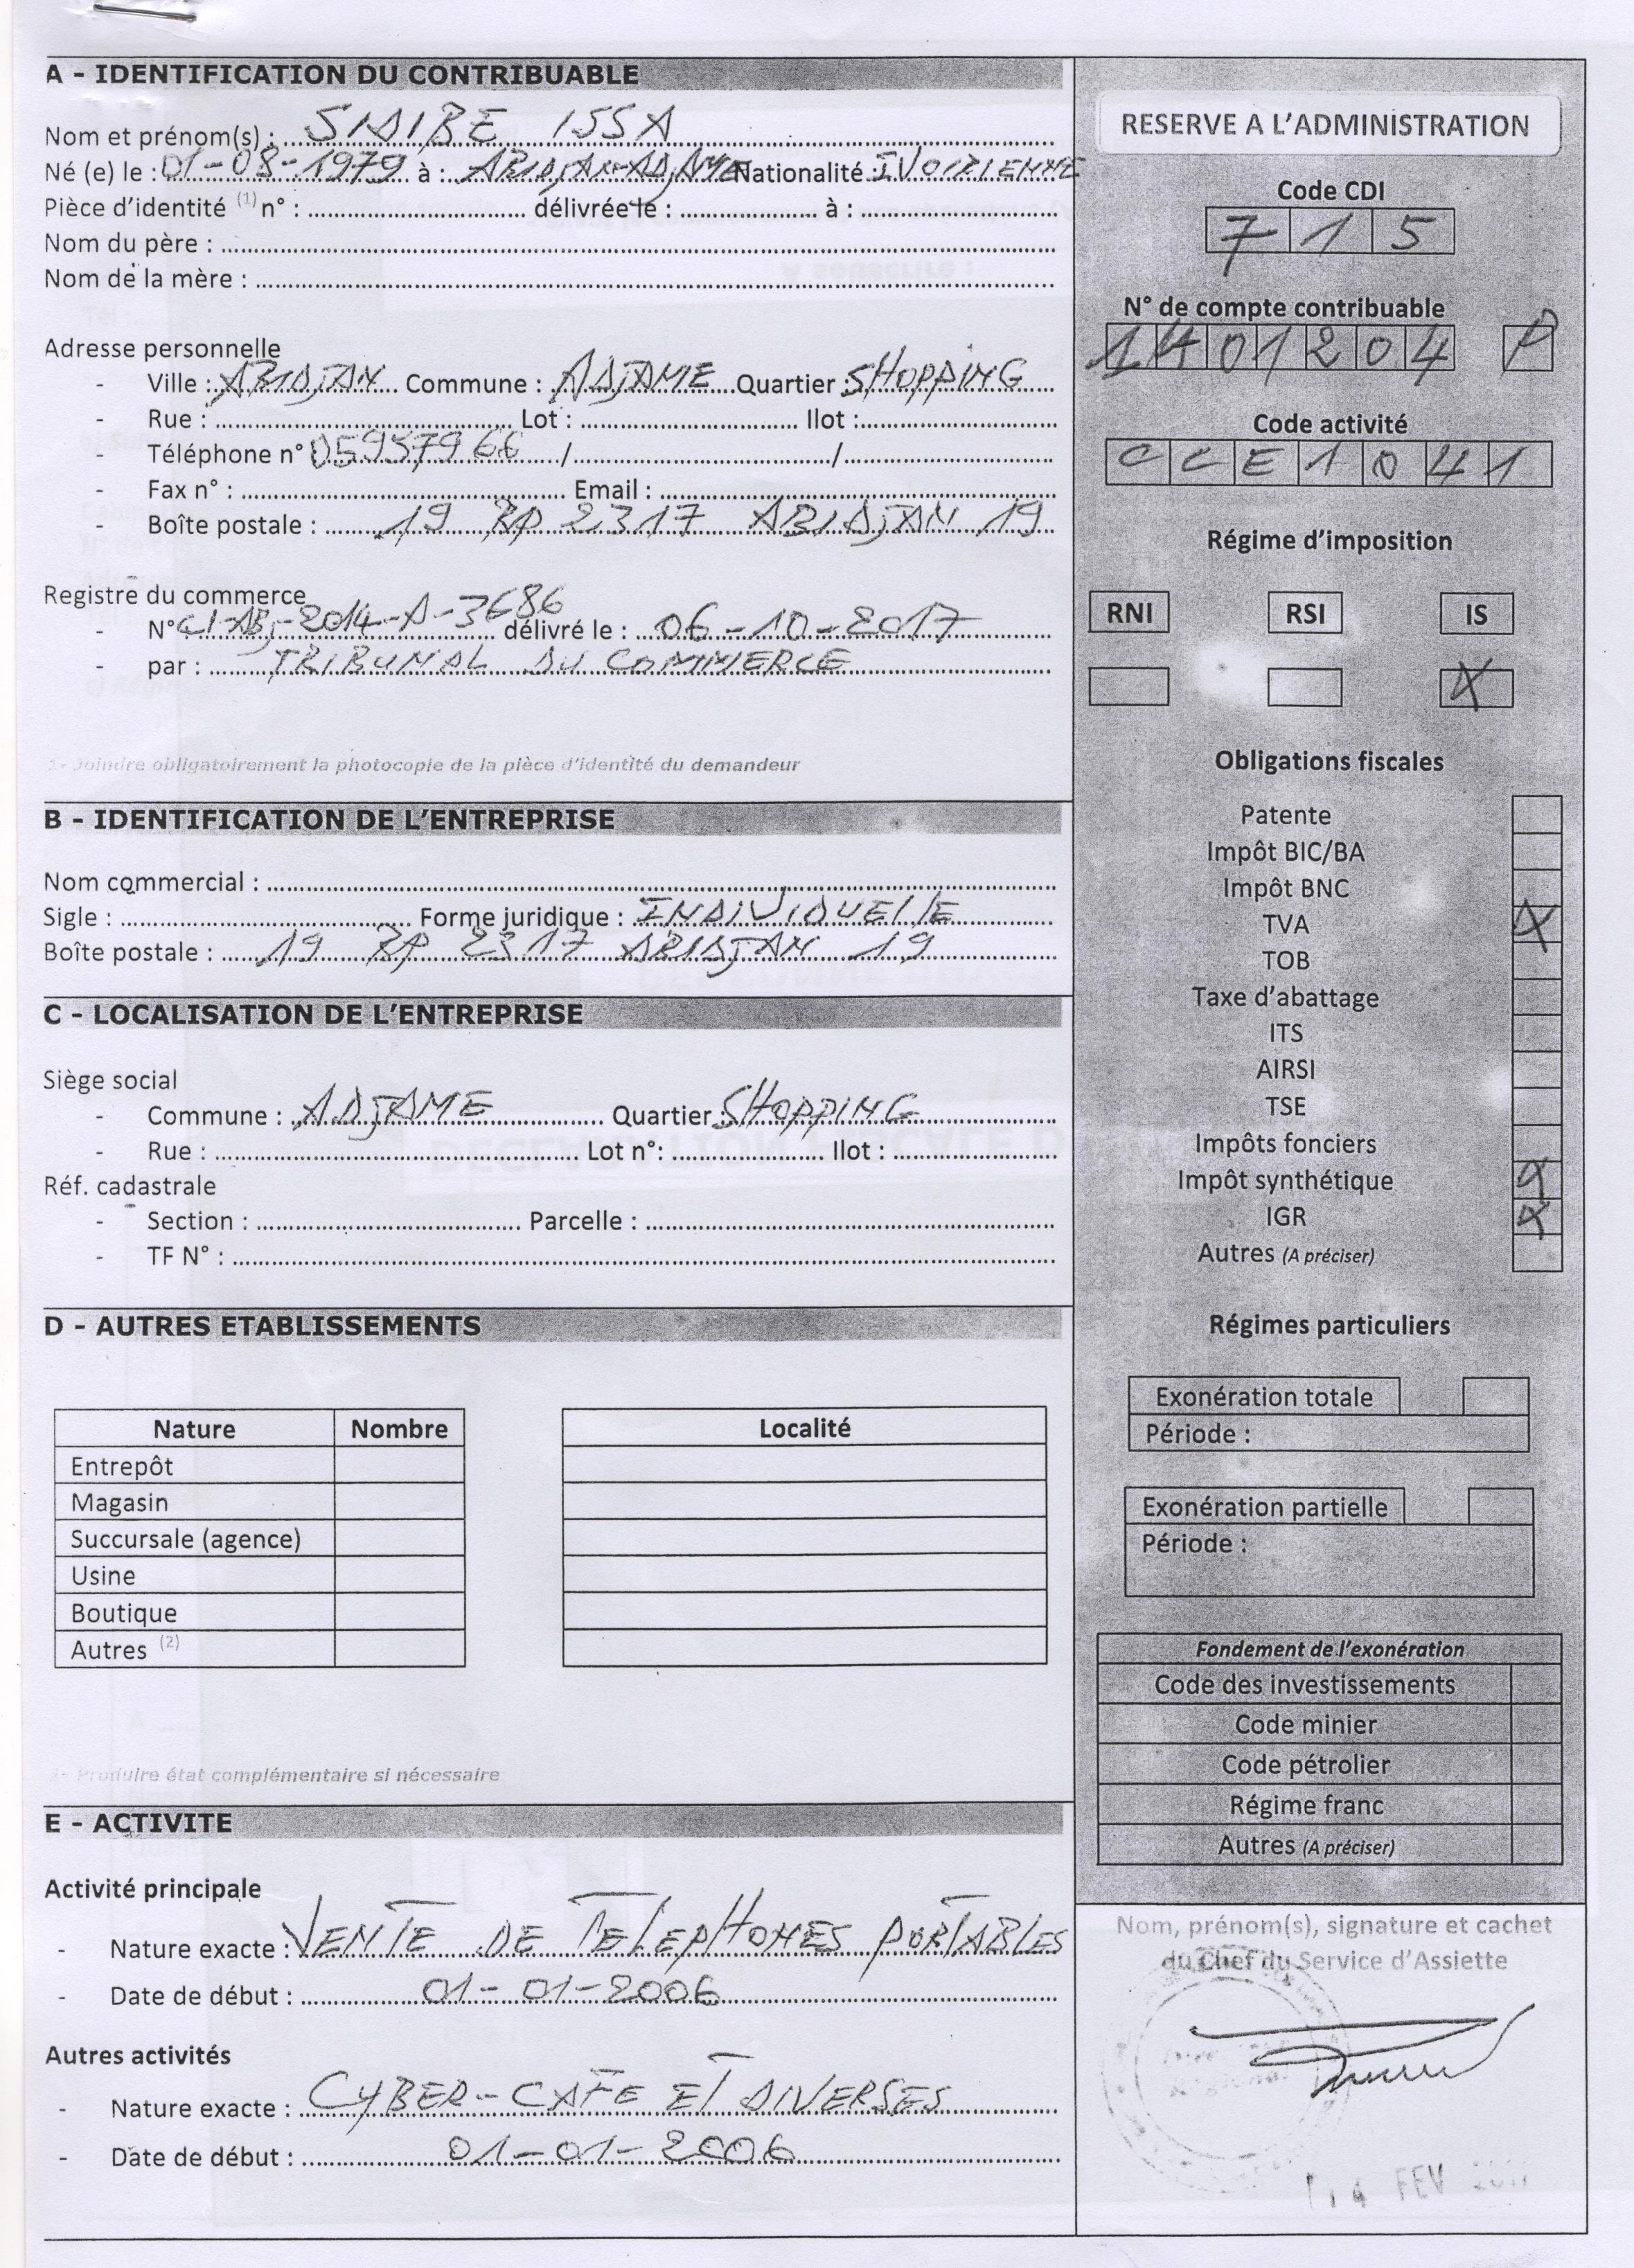 A - IDENTIFICATION DU CONTRIBUABLE
Nom et prénom(s) : SIDIBE ISSA
Né (e) le : 01-08-1979 à : ABIDJAN-ADJAME Nationalité : IVOIRIENNE
Pièce d'identité (1) n° : délivrée le : à :
Nom du père :
Nom de la mère :
Adresse personnelle
- Ville : ABIDJAN Commune : ADJAME Quartier : SHOPPING
- Rue : Lot : Ilot :
- Téléphone n° 05957966 / /
- Fax n° : Email :
- Boîte postale : 19 BP 2317 ABIDJAN 19
Registre du commerce
- N° CI-ABJ-2014-A-3686 délivré le : 06-10-2017
- par : TRIBUNAL DU COMMERCE
1- Joindre obligatoirement la photocopie de la pièce d'identité du demandeur
B - IDENTIFICATION DE L'ENTREPRISE
Nom commercial :
Sigle : Forme juridique : INDIVIDUELLE
Boîte postale : 19 BP 2317 ABIDJAN 19
C - LOCALISATION DE L'ENTREPRISE
Siège social
- Commune : ADJAME Quartier : SHOPPING
- Rue : Lot n°: Ilot :
Réf. cadastrale
- Section : Parcelle :
- TF N° :
D - AUTRES ETABLISSEMENTS
Nature Nombre Localité
Entrepôt
Magasin
Succursale (agence)
Usine
Boutique
Autres (2)
2- Produire état complémentaire si nécessaire
E - ACTIVITE
Activité principale
- Nature exacte : VENTE DE TELEPHONES PORTABLES
- Date de début : 01-01-2006
Autres activités
- Nature exacte : CYBER-CAFE ET DIVERSES
- Date de début : 01-01-2006
RESERVE A L'ADMINISTRATION
Code CDI
7 1 5
N° de compte contribuable
1401204 P
Code activité
CCE1041
Régime d'imposition
RNI RSI IS
X
Obligations fiscales
Patente
Impôt BIC/BA
Impôt BNC
TVA X
TOB
Taxe d'abattage
ITS
AIRSI
TSE
Impôts fonciers
Impôt synthétique X
IGR X
Autres (A préciser)
Régimes particuliers
Exonération totale
Période :
Exonération partielle
Période :
Fondement de l'exonération
Code des investissements
Code minier
Code pétrolier
Régime franc
Autres (A préciser)
Nom, prénom(s), signature et cachet
du Chef du Service d'Assiette
FEV